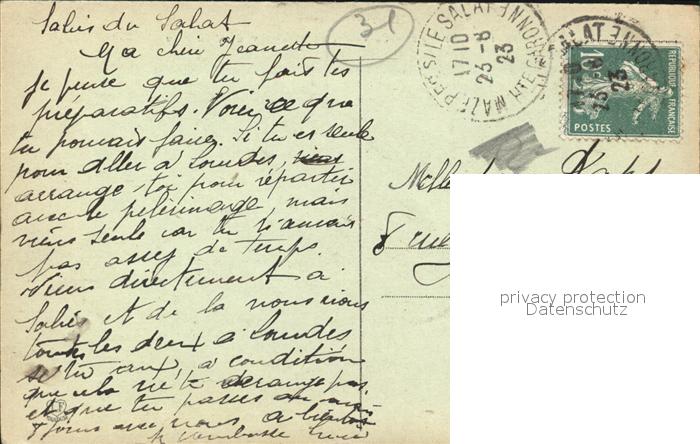 Salies du Salat
Ma chère Jeannette
je pense que tu fais tes
préparatifs. Voici ce que
tu pourrais faire. Si tu es seule
pour aller à Lourdes,
arrange-toi pour repartir
avec le pélerinage, mais
viens seule car tu n'aurais
pas assez de temps.
Viens directement à
Salies et de là nous irons
toutes les deux à Lourdes
si tu veux, à condition
que cela ne te dérange pas,
et que tu passes
avec nous. à bientôt
je t'embrasse
31
SALIES DU SALAT
HTE GARONNE
17 10
23 - 8
23
RÉPUBLIQUE FRANÇAISE
10c
POSTES
Melle
privacy protection
Datenschutz